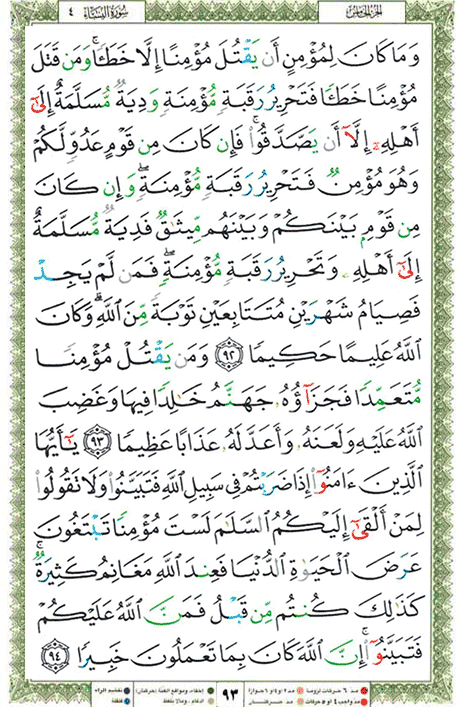 الجزء الخامس سورة النساء ٤
وَمَا كَانَ لِمُؤْمِنٍ أَن يَقْتُلَ مُؤْمِنًا إِلَّا خَطَـًٔا ۚ وَمَن قَتَلَ
مُؤْمِنًا خَطَـًٔا فَتَحْرِيرُ رَقَبَةٍ مُّؤْمِنَةٍ وَدِيَةٌ مُّسَلَّمَةٌ إِلَىٰٓ
أَهْلِهِۦٓ إِلَّآ أَن يَصَّدَّقُوا۟ ۚ فَإِن كَانَ مِن قَوْمٍ عَدُوٍّ لَّكُمْ
وَهُوَ مُؤْمِنٌ فَتَحْرِيرُ رَقَبَةٍ مُّؤْمِنَةٍ ۖ وَإِن كَانَ
مِن قَوْمٍۭ بَيْنَكُمْ وَبَيْنَهُم مِّيثَـٰقٌ فَدِيَةٌ مُّسَلَّمَةٌ
إِلَىٰٓ أَهْلِهِۦ وَتَحْرِيرُ رَقَبَةٍ مُّؤْمِنَةٍ ۖ فَمَن لَّمْ يَجِدْ
فَصِيَامُ شَهْرَيْنِ مُتَتَابِعَيْنِ تَوْبَةً مِّنَ ٱللَّهِ ۗ وَكَانَ
ٱللَّهُ عَلِيمًا حَكِيمًا ٩٢ وَمَن يَقْتُلْ مُؤْمِنًا
مُّتَعَمِّدًا فَجَزَآؤُهُۥ جَهَنَّمُ خَـٰلِدًا فِيهَا وَغَضِبَ
ٱللَّهُ عَلَيْهِ وَلَعَنَهُۥ وَأَعَدَّ لَهُۥ عَذَابًا عَظِيمًا ٩٣ يَـٰٓأَيُّهَا
ٱلَّذِينَ ءَامَنُوٓا۟ إِذَا ضَرَبْتُمْ فِى سَبِيلِ ٱللَّهِ فَتَبَيَّنُوا۟ وَلَا تَقُولُوا۟
لِمَنْ أَلْقَىٰٓ إِلَيْكُمُ ٱلسَّلَـٰمَ لَسْتَ مُؤْمِنًا تَبْتَغُونَ
عَرَضَ ٱلْحَيَوٰةِ ٱلدُّنْيَا فَعِندَ ٱللَّهِ مَغَانِمُ كَثِيرَةٌ ۚ
كَذَٰلِكَ كُنتُم مِّن قَبْلُ فَمَنَّ ٱللَّهُ عَلَيْكُمْ
فَتَبَيَّنُوٓا۟ ۚ إِنَّ ٱللَّهَ كَانَ بِمَا تَعْمَلُونَ خَبِيرًا ٩٤
مد ٦ حركات لزوما مد ٢ او ٤ او ٦ جوازا إخفاء، ومواقع الغنة (حركتان) تفخيم الراء
٩٣
مد واجب ٤ او ٥ حركات مد حركتان إدغام، وما لا يلفظ قلقلة